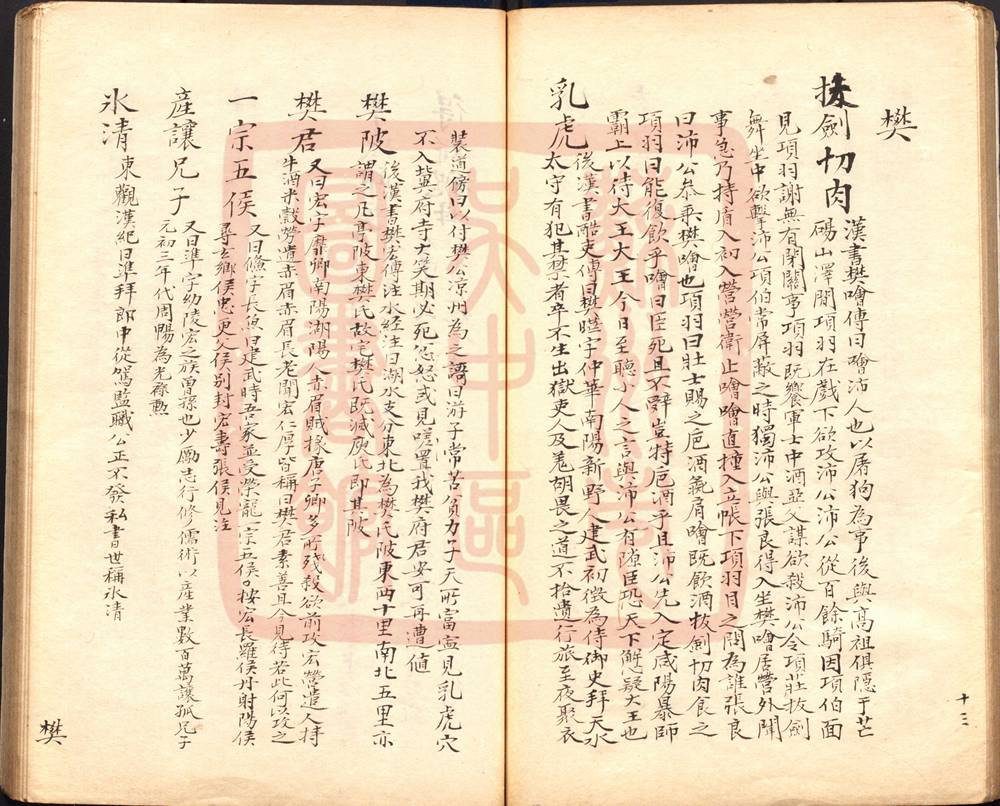 樊
拔劍切肉 漢書樊噲傳曰噲沛人也以屠狗為事後與高祖俱隱于芒
碭山澤閒項羽在戲下欲攻沛公沛公從百餘騎因項伯面
見項羽謝無有閉關事項羽既饗軍士中酒亞父謀欲殺沛公令項莊拔劍
舞坐中欲擊沛公項伯常屏蔽之時獨沛公與張良得入坐樊噲居營外聞
事急乃持盾入初入營營衛止噲噲直撞入立帳下項羽目之問為誰張良
曰沛公參乘樊噲也項羽曰壯士賜之巵酒彘肩噲既飲酒拔劍切肉食之
項羽曰能復飲乎噲曰臣死且不辤豈特巵酒乎且沛公先入定咸陽暴師
霸上以待大王大王今日至聽小人之言與沛公有隙臣恐天下解疑大王也
乳虎 後漢書酷吏傳曰樊曄字仲華南陽新野人建武初徵為侍御史拜天水
太守有犯其禁者卒不生出獄吏人及羌胡畏之道不拾遺行旅至夜聚衣
裝道傍曰以付樊公涼州為之謌曰游子常苦貧力子天所富寍見乳虎穴
不入冀府寺大笑期必死忿怒或見嗟置我樊府君安可再遭値
樊陂 後漢書樊宏傳注水經注曰湖水支分東北為樊氏陂東西十里南北五里亦
謂之凡亭陂東樊氏故宅樊氏既滅庾氏即其陂
樊君 又曰宏字靡卿南陽湖陽人赤眉賊掾唐子卿多所殘殺欲前攻宏營遣人持
牛酒米穀勞遺赤眉赤眉長老聞宏仁厚皆稱曰樊君素善且今見待若此何攻之
一宗五侯 又曰儵字長魚曰建武時吾家並受榮寵一宗五侯按宏長羅侯丹射陽侯
尋玄鄉侯忠更父侯別封宏壽張侯見注
產讓兄子 又曰準字幼陵宏之族曾孫也少勵志行修儒術以產業數百萬讓孤兄子
元初三年代周暢為光祿勳
氷清 東觀漢紀曰準拜郎中從駕監職公正不發私書世稱氷清
樊
十三